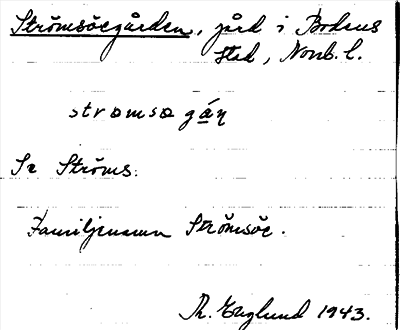 Strömsöegården, gård i Bodens
stad, Norrb. l.
strømsø gá̱ṇ
Se Ströms.
Familjenamn Strömsöe.
Th. Englund 1943.